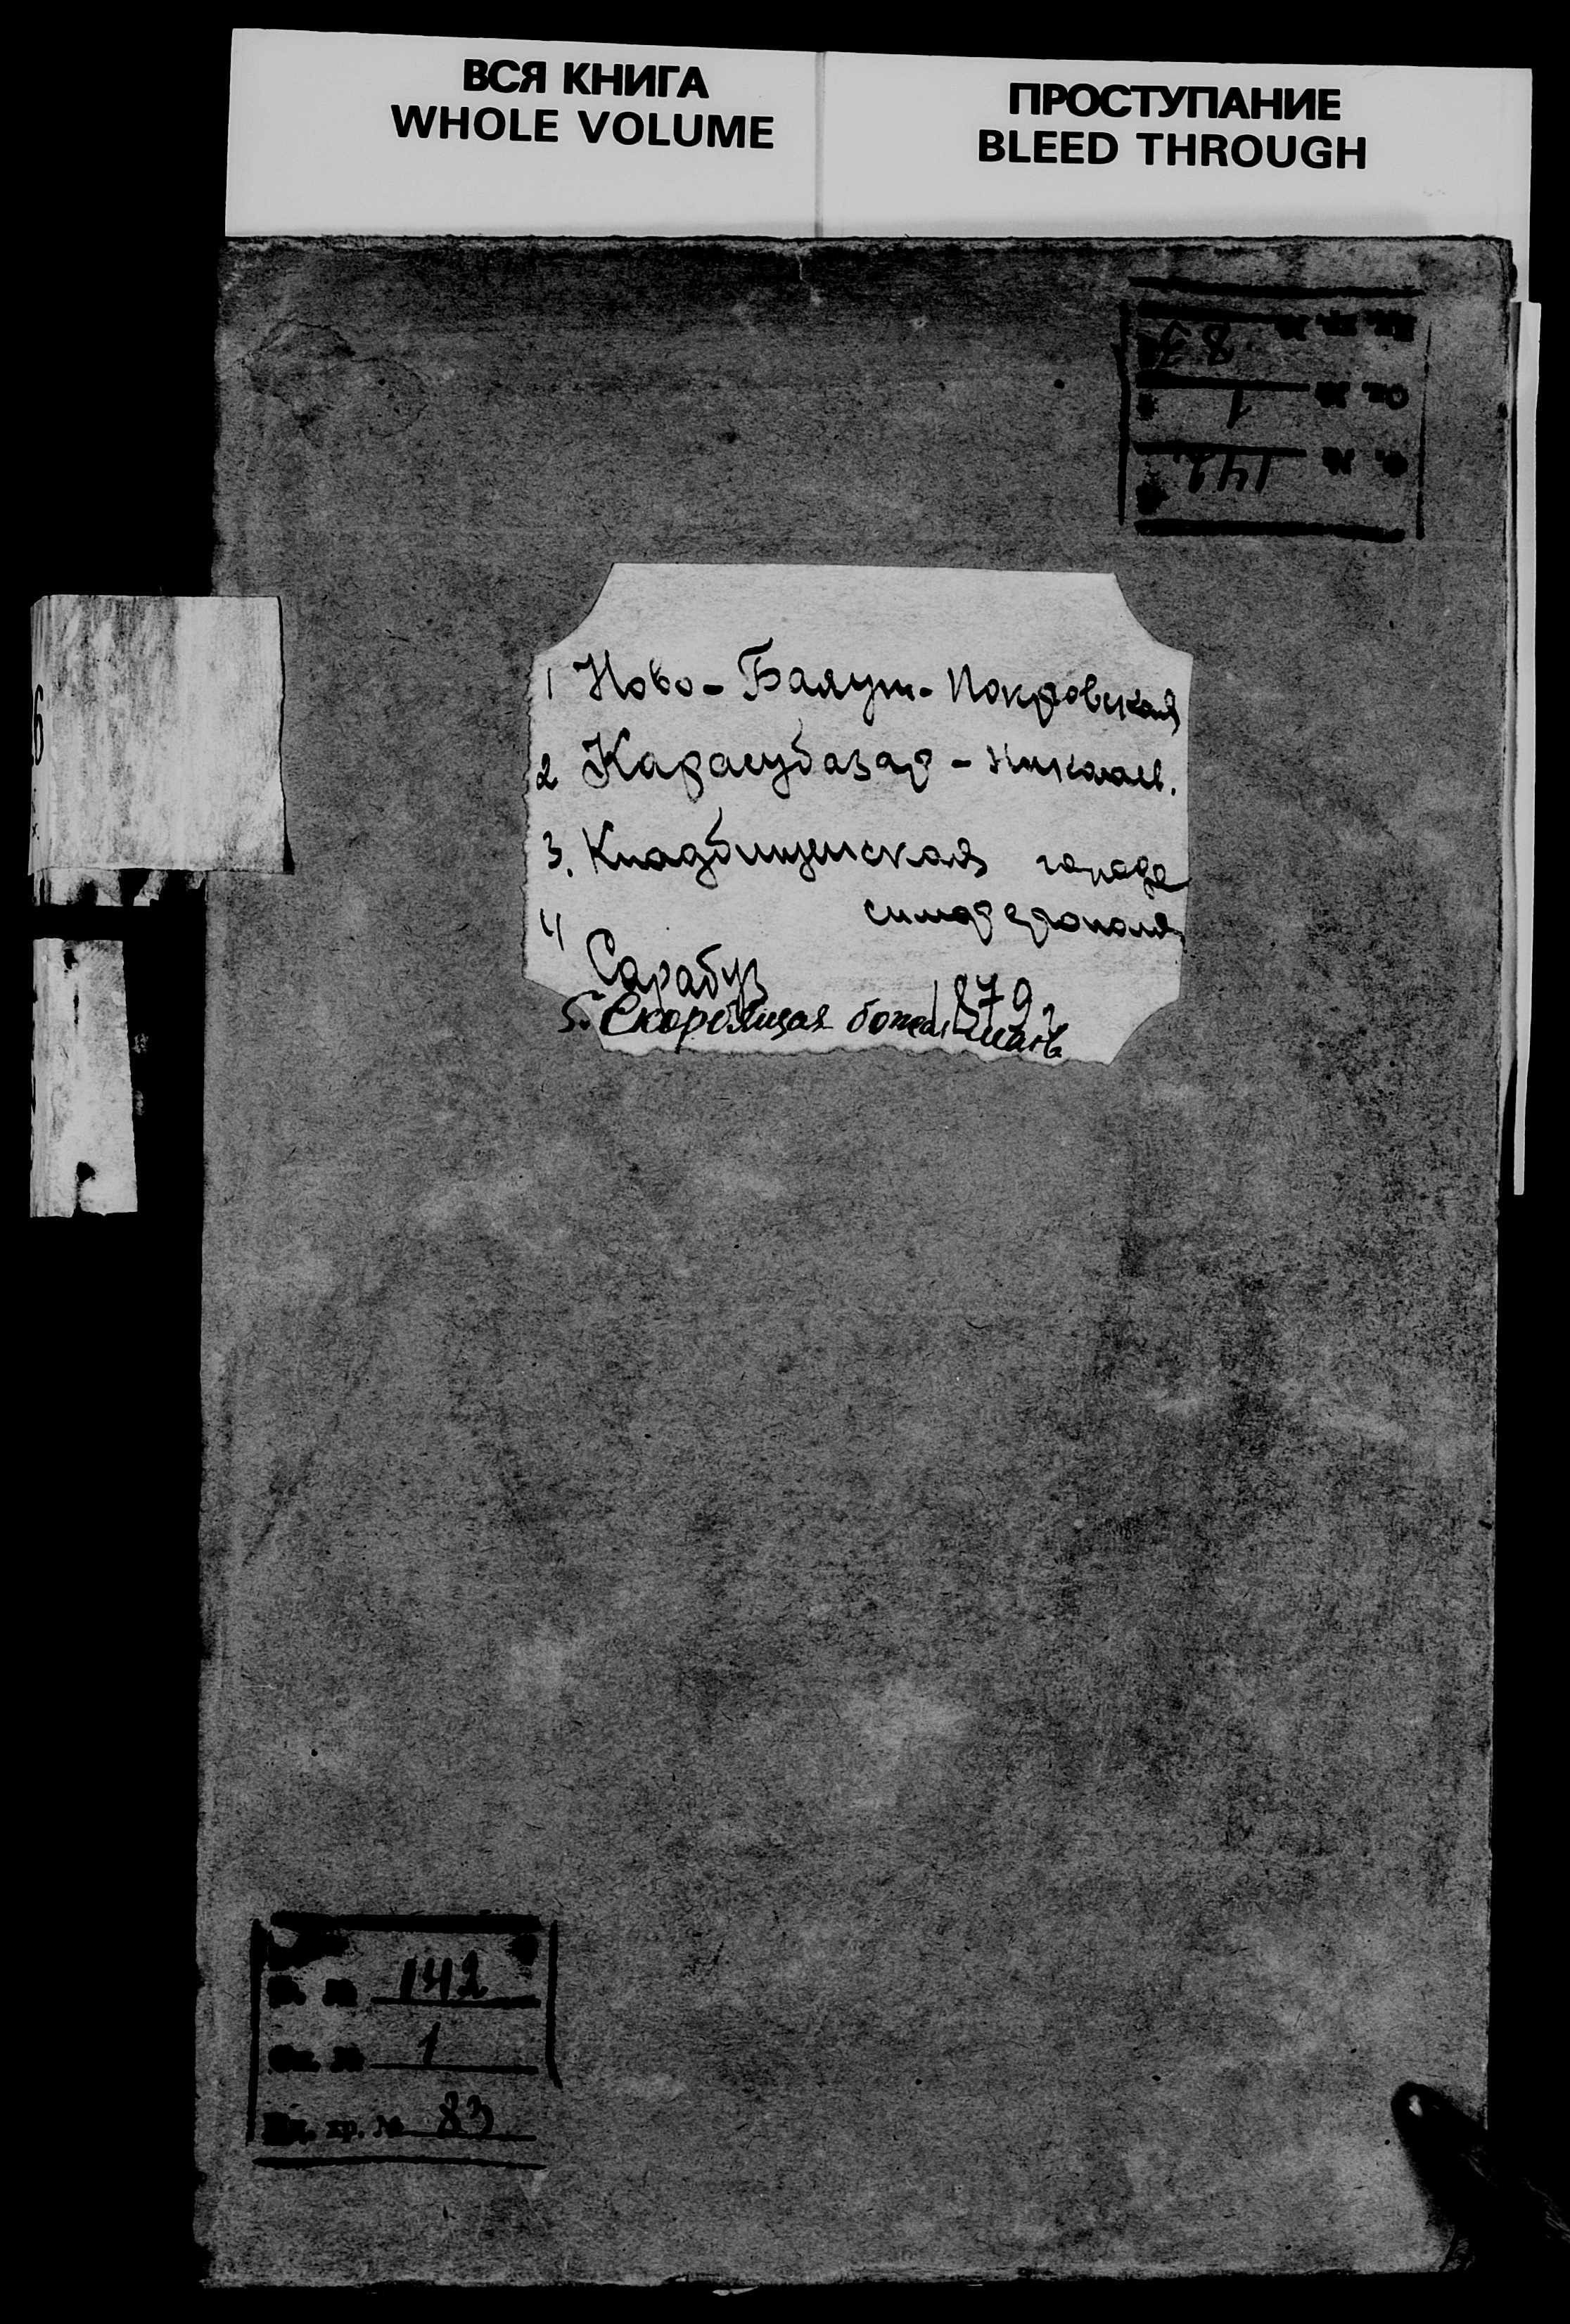 ВСЯ КНИГА
WHOLE VOLUME
ПРОСТУПАНИЕ
BLEED THROUGH
Ед. хр. № 83
Оп. № 1
Ф. № 142
6
1 Ново-Баяут-Покровская
2 Карасубазар-Николаев.
3. Кладбищенская города
симферополя
4 Сарабуз
1879 г
5. Скорбящая божья мать
Ф. № 142
Оп. № 1
Ед. хр. № 83